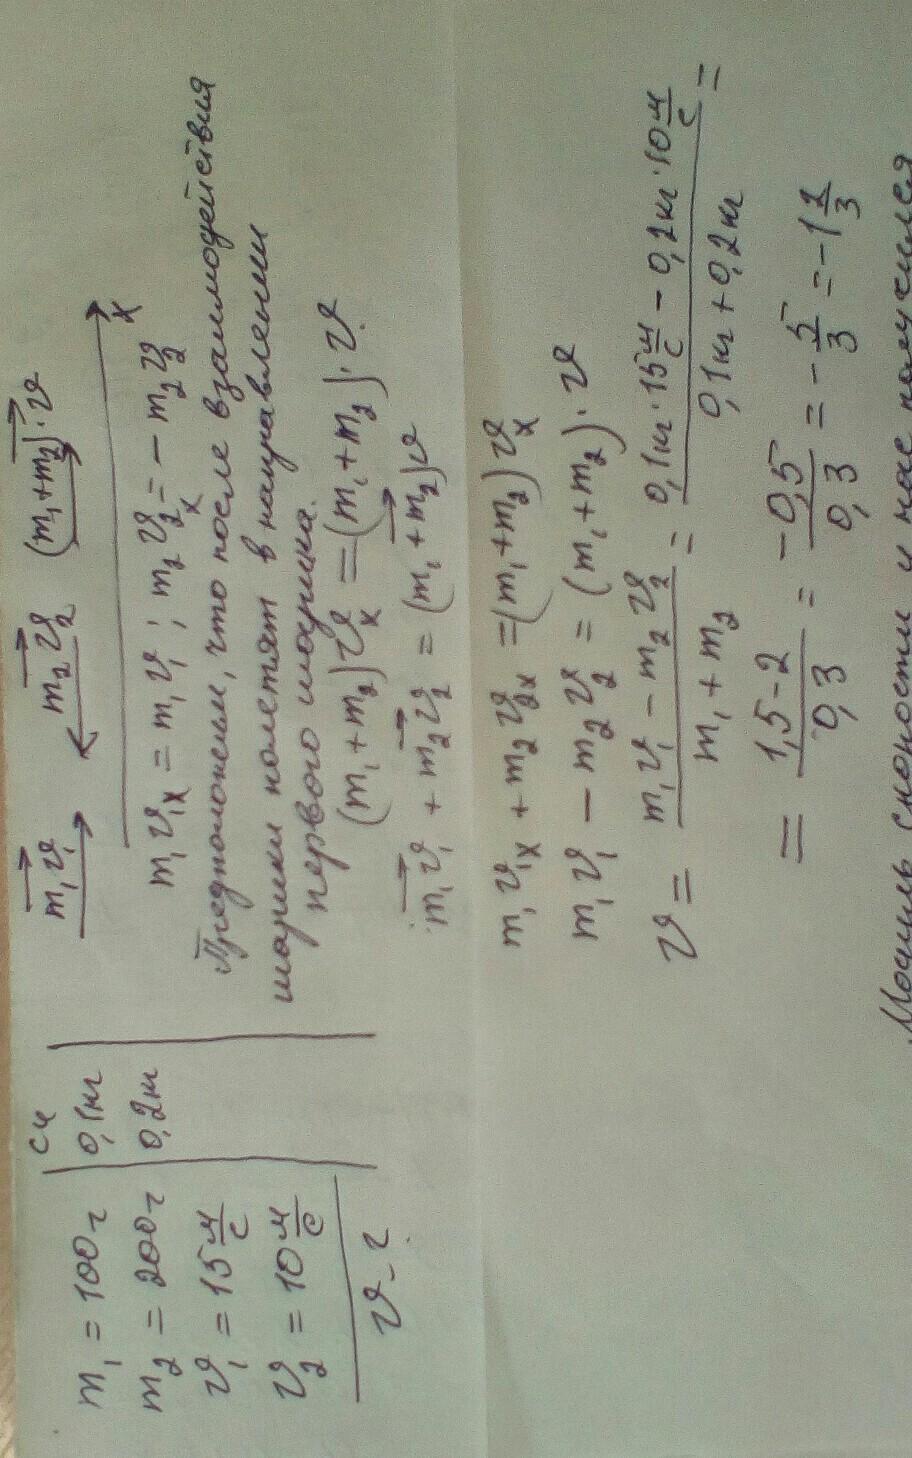 m₁ = 100г
m₂ = 200г
𝑣₁ = 15 м/с
𝑣₂ = 10 м/с
𝑣 - ?
СИ
0,1кг
0,2кг
m₁𝑣₁ m₂𝑣₂ (m₁+m₂)·𝑣
x
m₁𝑣₁ₓ = m₁𝑣₁ ; m₂𝑣₂ₓ = − m₂𝑣₂
Предположим, что после взаимодействия
шарики полетят в направлении
первого шарика.
(m₁+m₂)𝑣ₓ = (m₁+m₂)·𝑣.
m₁𝑣₁ + m₂𝑣₂ = (m₁+m₂)𝑣
m₁𝑣₁ₓ + m₂𝑣₂ₓ = (m₁+m₂)𝑣ₓ
m₁𝑣₁ − m₂𝑣₂ = (m₁+m₂)·𝑣
𝑣 = (m₁𝑣₁ − m₂𝑣₂)/(m₁+m₂) = (0,1кг·15м/с − 0,2кг·10м/с)/(0,1кг+0,2кг) =
= (1,5-2)/0,3 = −0,5/0,3 = −5/3 = −1 2/3
Модуль скорости у нас получился